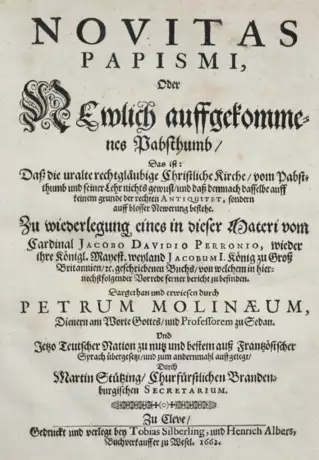 NOVITAS
PAPISMI,
Oder
Newlich auffgekomme-
nes Pabstthumb/
Das ist:
Daß die uralte rechtgläubige Christliche Kirche/ vom Pabst-
thumb und seiner Lehr nichts gewust/ und daß demnach dasselbe auff
keinem grunde der rechten ANTIQUITET, sondern
auff blosser Newerung bestehe.
Zu wiederlegung eines in dieser Materi vom
Cardinal JACOBO DAVIDIO PERRONIO, wieder
ihre Königl. Mayest. weyland JACOBUM I. König zu Groß
Britannien/ ꝛc. geschriebenen Buchs/ von welchem in hier-
nechstfolgender Vorrede ferner bericht zu befinden.
Dargethan und erwiesen durch
PETRUM MOLINÆUM,
Dienern am Worte Gottes/ und Professorem zu Sedan.
Und
Jetzo Teutscher Nation zu nutz und bestem auß Frantzösischer
Sprach übergesetzt/ und zum andernmahl auffgelegt/
Durch
Martin Stützing/ Churfürstlichen Branden-
burgischen SECRETARIUM.
Zu Cleve/
Gedruckt und verlegt bey Tobias Silberling, und Henrich Albers,
Buchverkauffer zu Wesel. 1662.